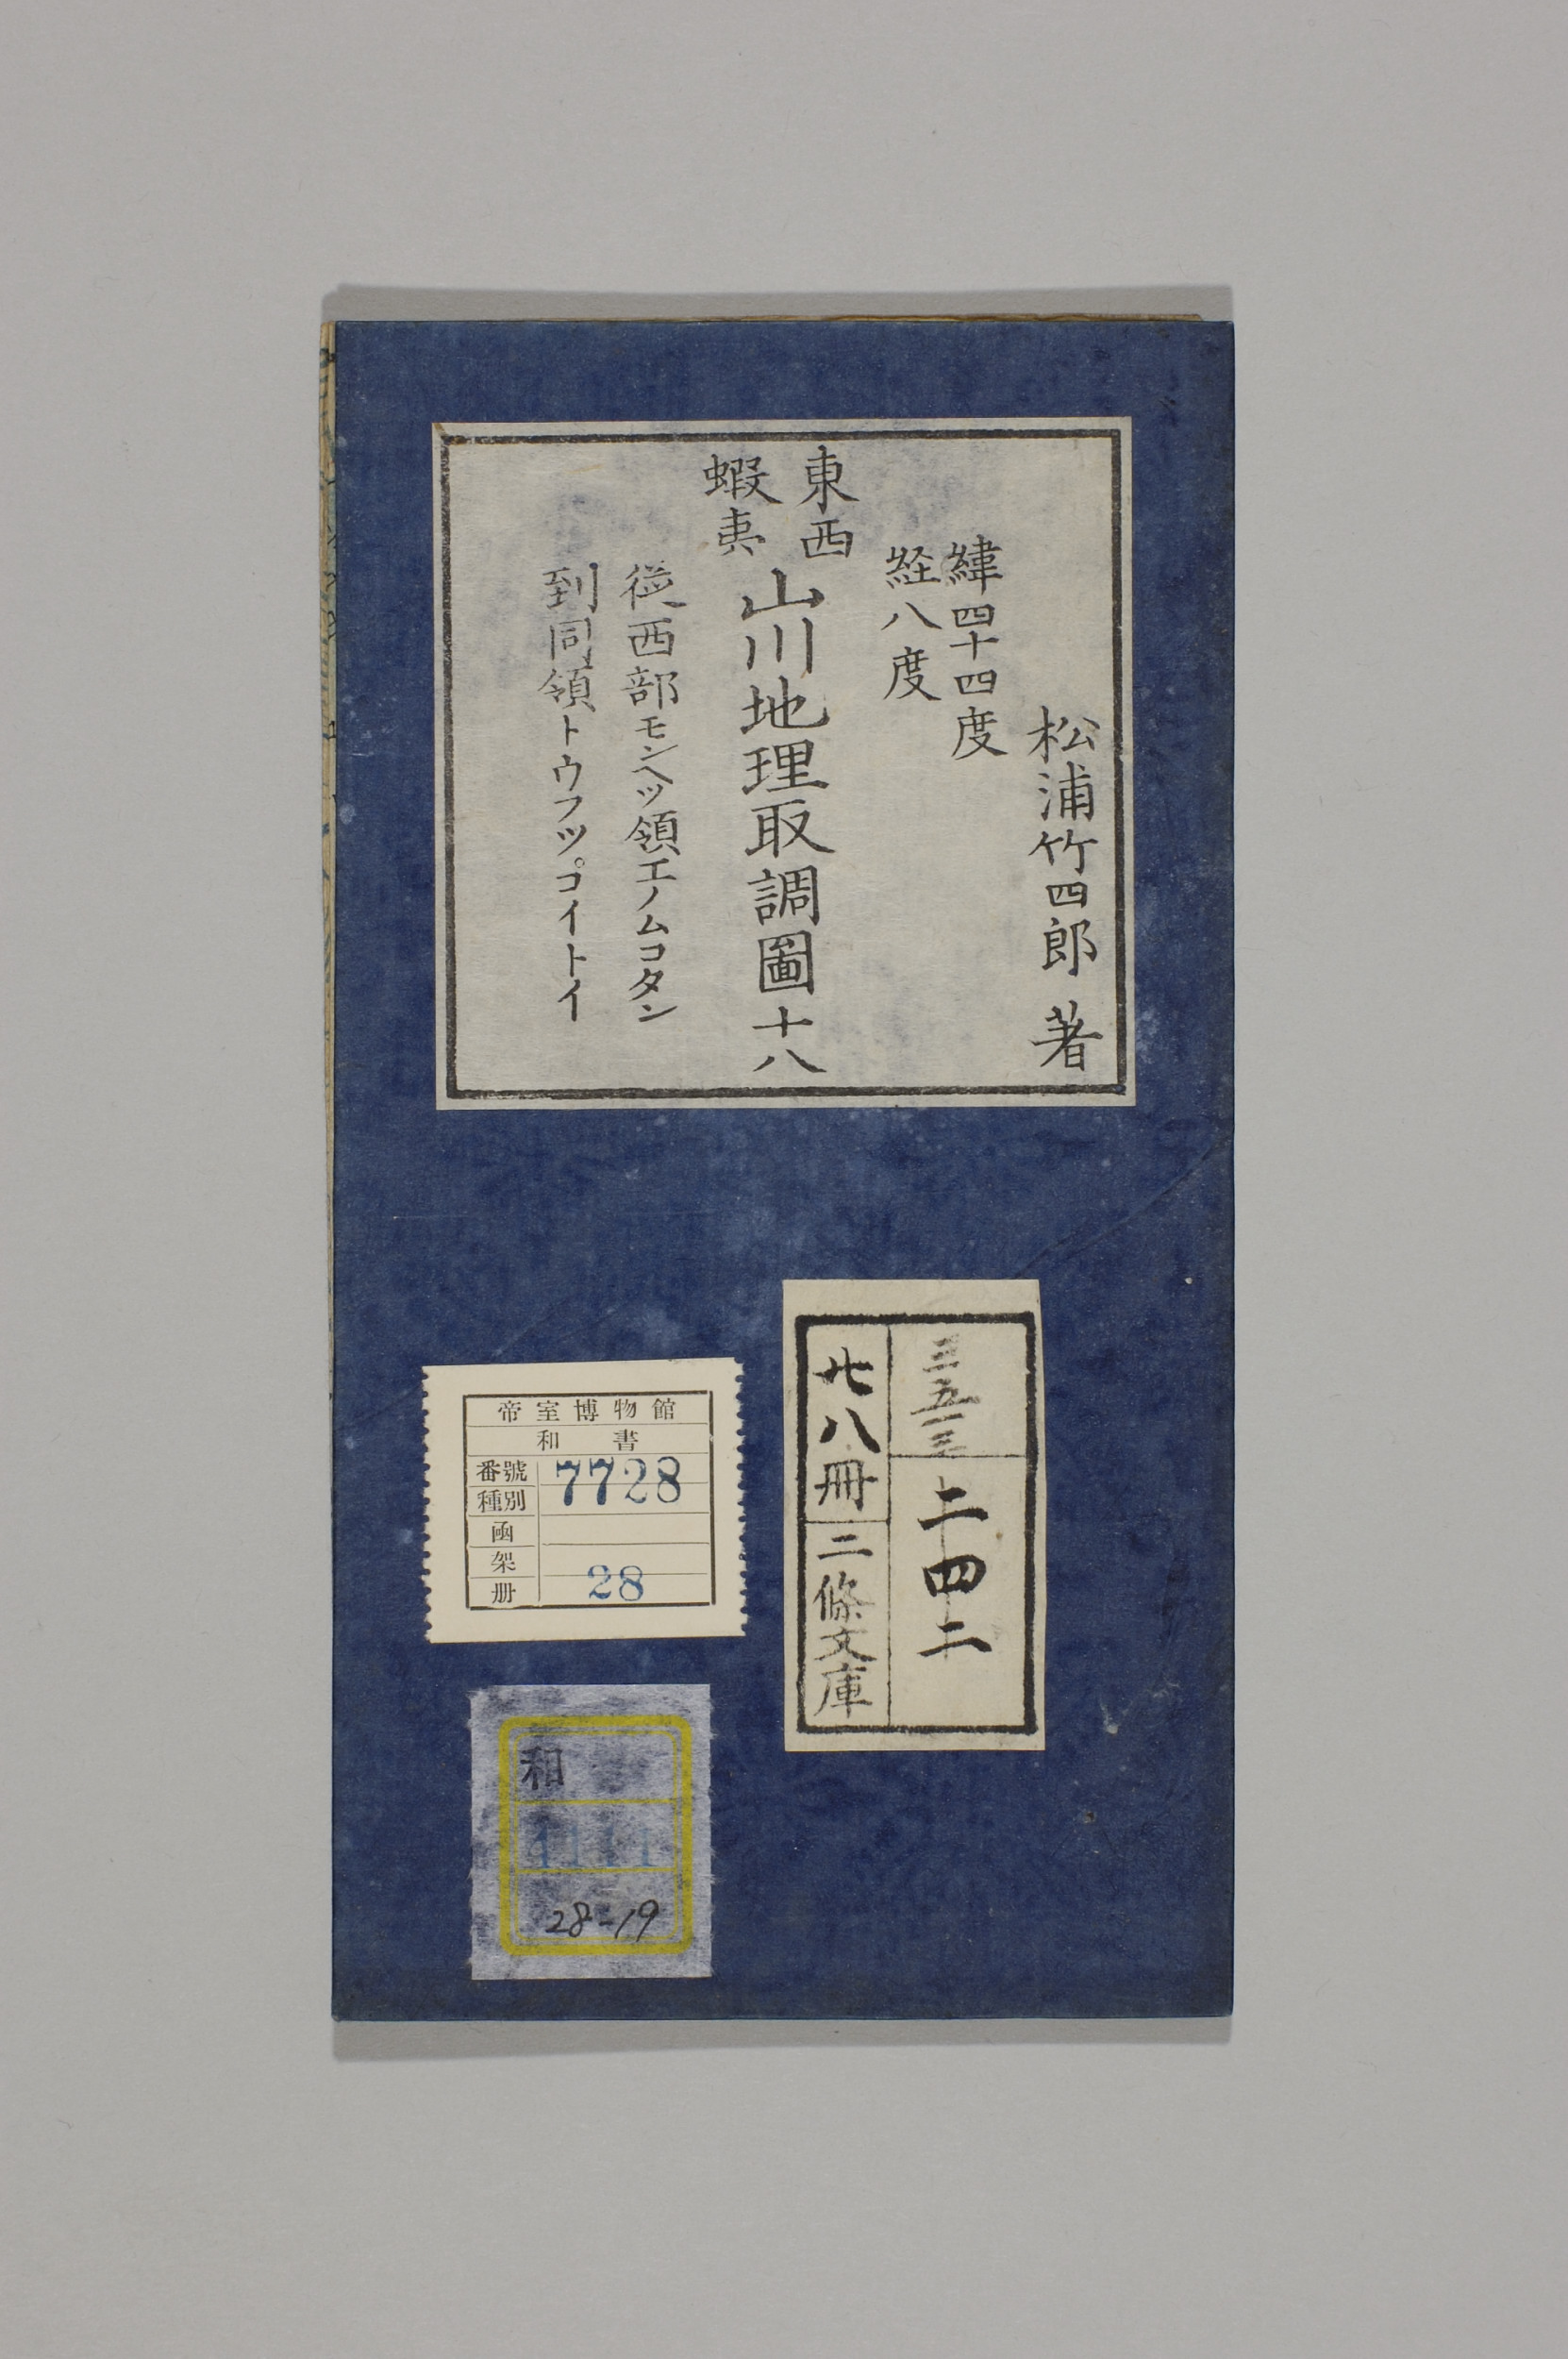 松浦竹四郎 著
緯四十四度
経八度
東西
蝦夷
山川地理取調圖十八
従西部モンヘツ領エノムコタン
到同領トウフツプコイトイ
二四二
廿八冊
二條文庫
帝室博物館
和書
番號 7728
種別
函
架
册 28
和
28-19